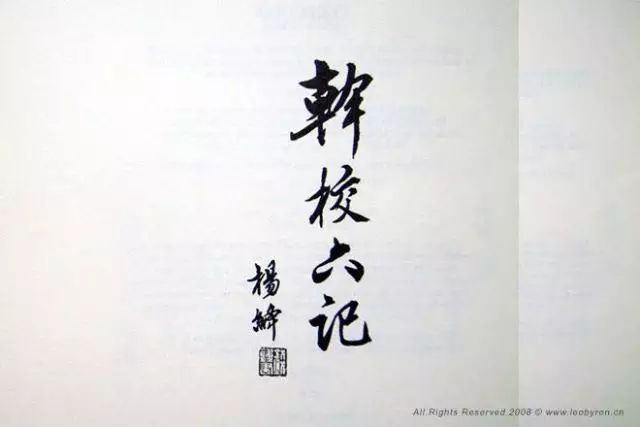 幹校六记
楊絳
All Rights Reserved 2008 © www.leobyron.cn